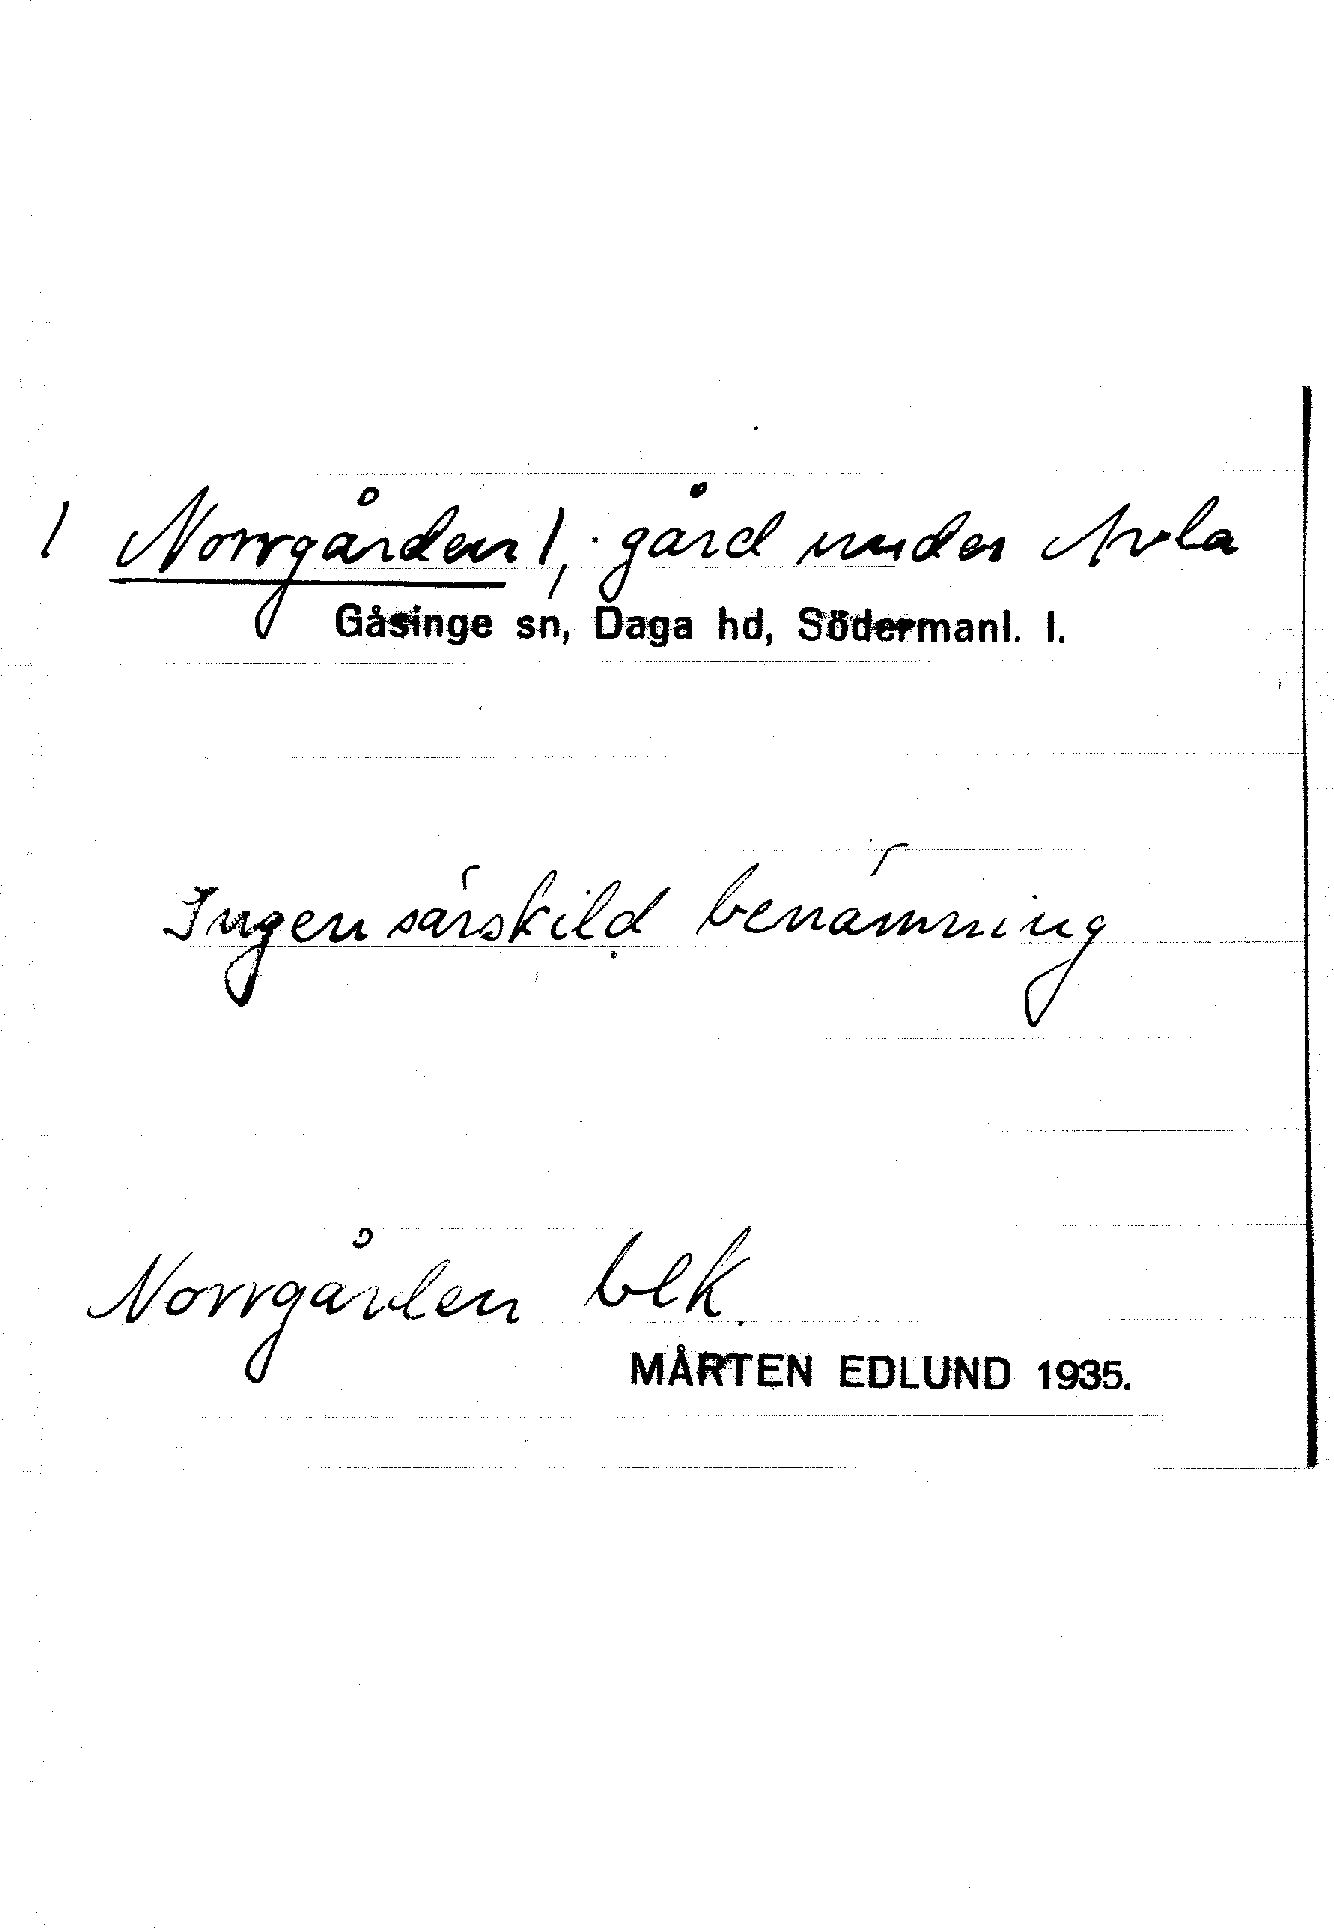 / Norrgården /, gård under Avla
Gåsinge sn, Daga hd, Södermanl. l.
Ingen särskild benämning
Norrgården blk.
MÅRTEN EDLUND 1935.